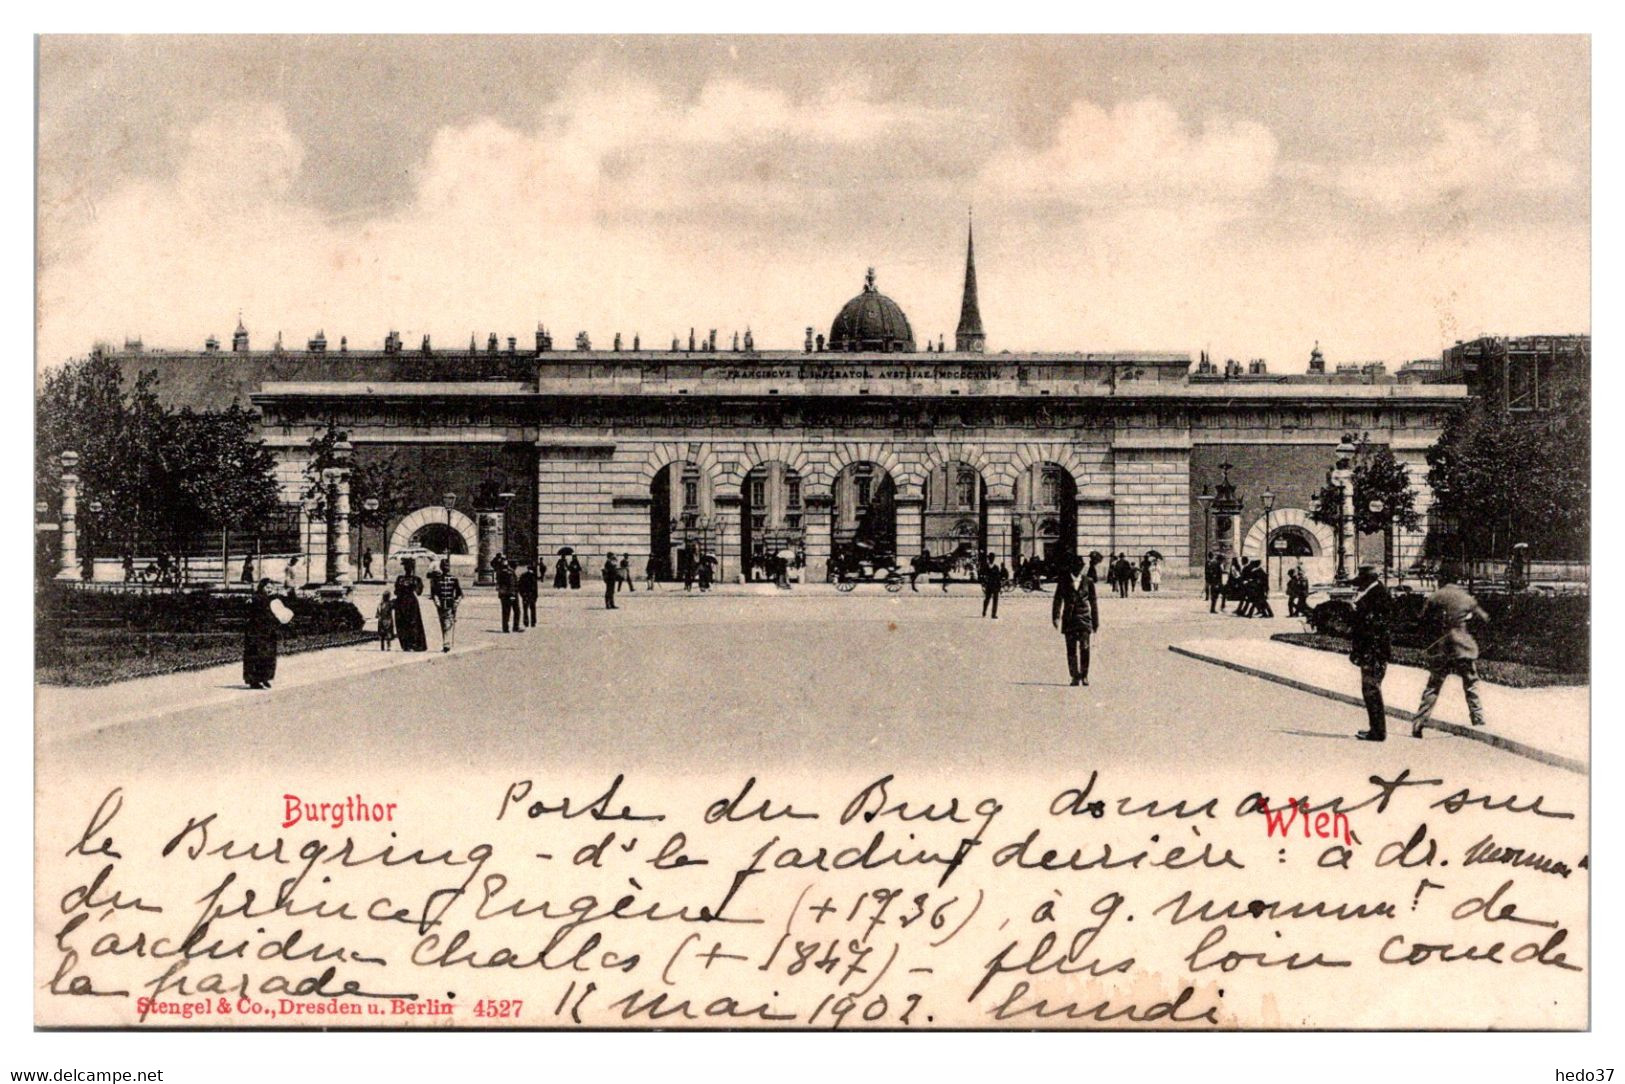 FRANCISCVS I. IMPERATOR. AVSTRIAE. MDCCCXXIV.
Burgthor
Wien
Porte du Burg donnant sur
le Burgring - ds le jardin derrière : à dr. monum.t
du prince Eugène (+1736), à g. monum.t de
l'archiduc Charles (+1847) - plus loin cour de
la parade. 12 mai 1902. lundi
Stengel & Co., Dresden u. Berlin 4527
www.delcampe.net
hedo37